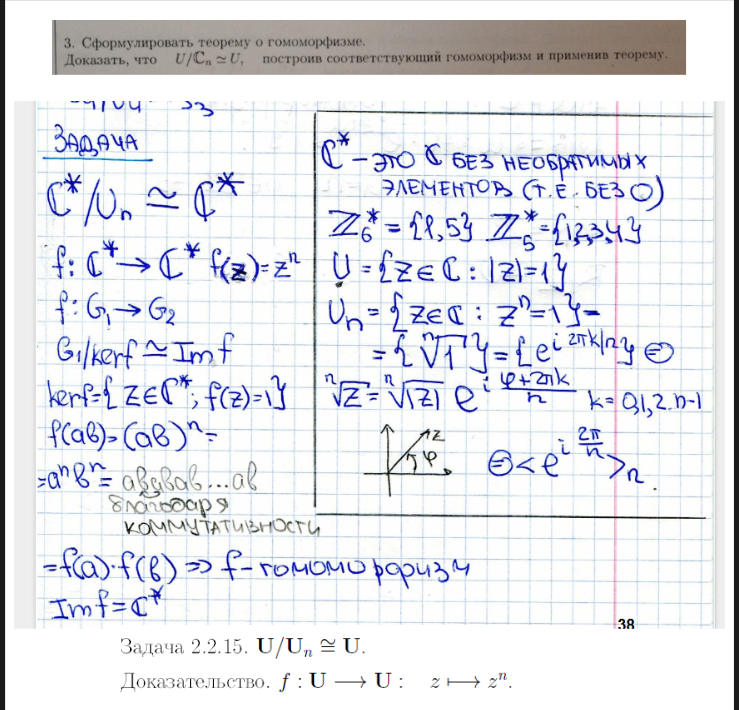 3. Сформулировать теорему о гомоморфизме.
Доказать, что U/ℂₙ ≃ U, построив соответствующий гомоморфизм и применив теорему.
ЗАДАЧА
ℂ*/Uₙ ≃ ℂ*
f: ℂ* → ℂ* f(z) = zⁿ
f: G₁ → G₂
G₁/kerf ≃ Im f
kerf = { z∈ℂ*; f(z)=1}
f(ab) = (ab)ⁿ =
= aⁿbⁿ = ававав...ав
благодаря
коммутативности
= f(a)·f(b) ⇒ f - гомоморфизм
Im f = ℂ*
ℂ* – ЭТО ℂ БЕЗ НЕОБРАТИМЫХ
ЭЛЕМЕНТОВ (Т.Е. БЕЗ 0)
ℤ₆* = {1,5} ℤ₅* = {1,2,3,4}
U = {z∈ℂ : |z|=1}
Uₙ = {z∈ℂ : zⁿ=1} =
= {ⁿ√1} = {e^{i 2πk/n}} ⊜
ⁿ√z = ⁿ√|z| e^{i (φ+2πk)/n} k = 0,1,2..n-1
z
φ
⊜ <e^{i 2π/n}>ₙ.
38
Задача 2.2.15. U/Uₙ ≅ U.
Доказательство. f : U ⟶ U : z ⟼ zⁿ.